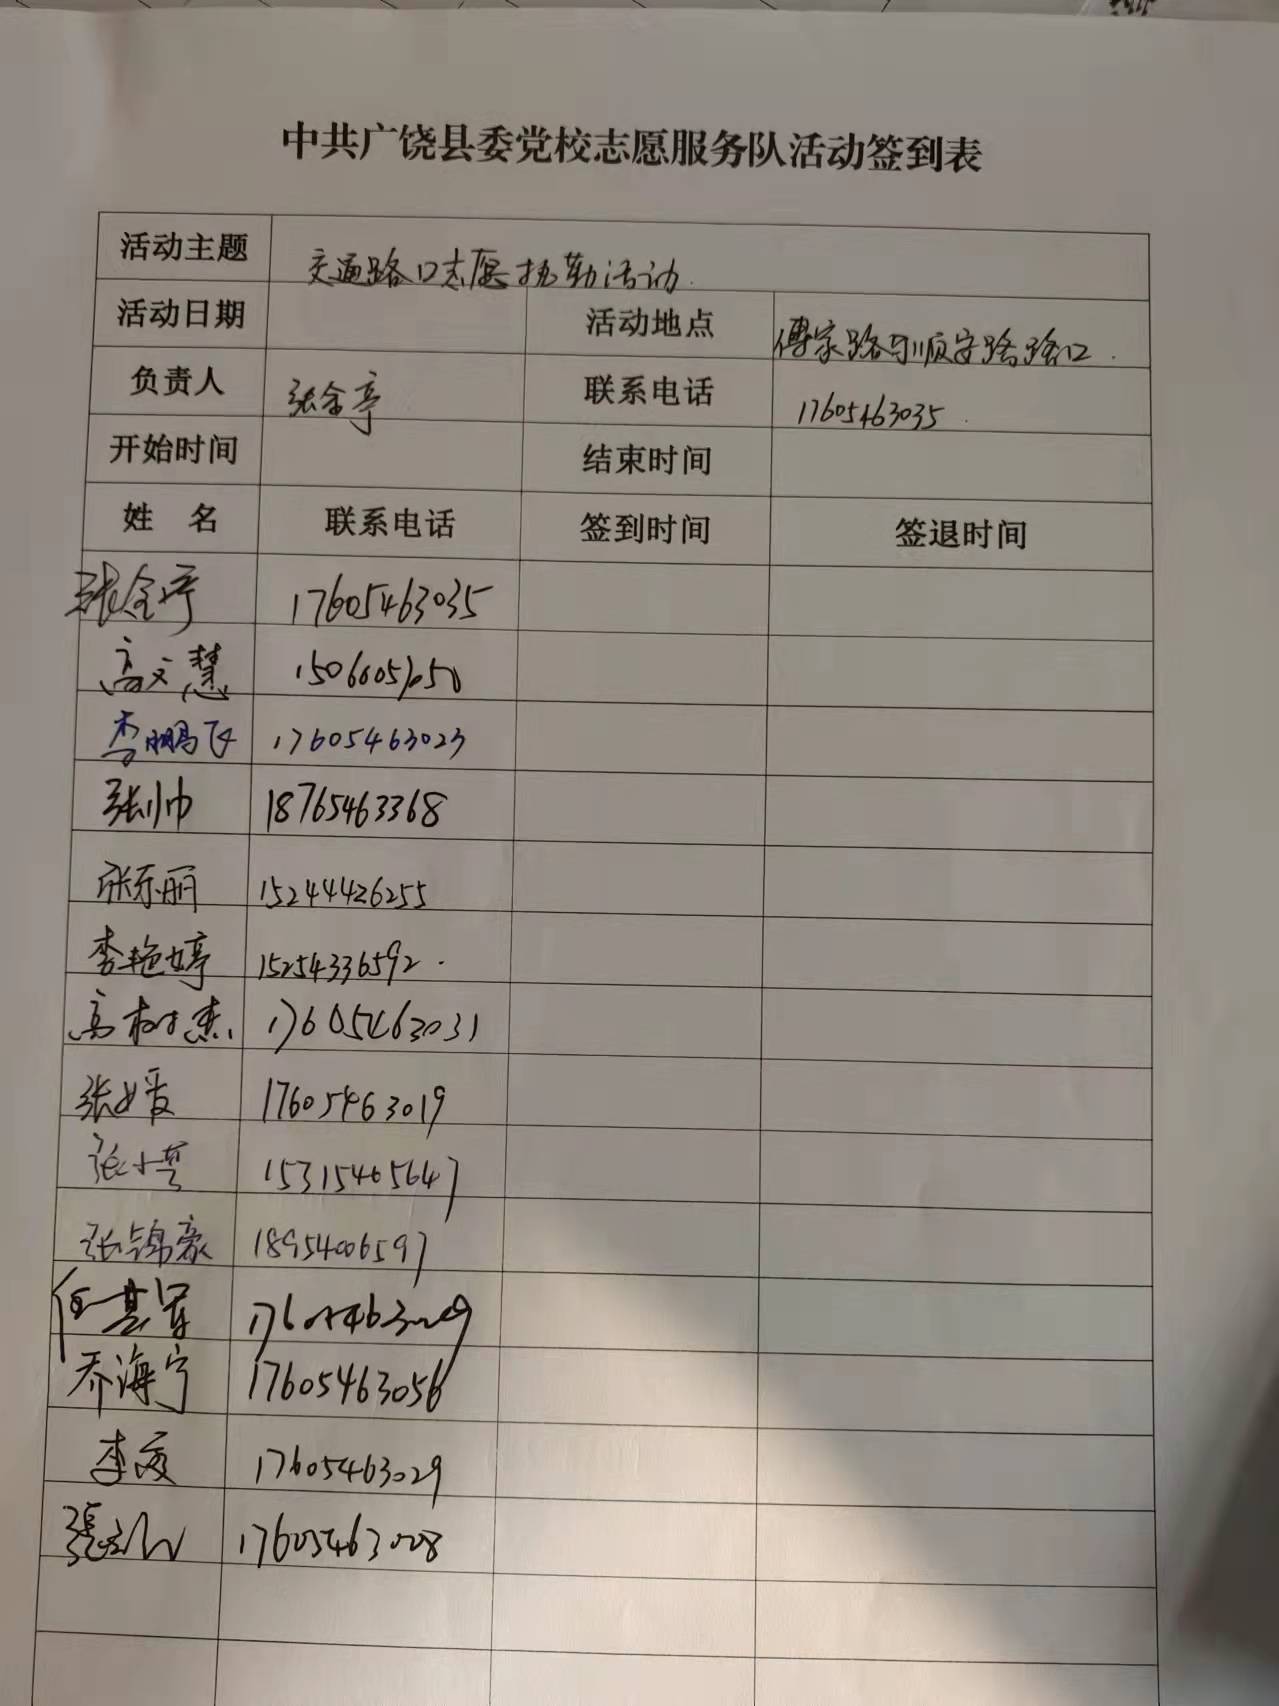 中共广饶县委党校志愿服务队活动签到表
活动主题 交通路口志愿执勤活动
活动日期 活动地点 傅家路与顺安路路口
负责人 张金亭 联系电话 17605463035
开始时间 结束时间
姓 名 联系电话 签到时间 签退时间
张金亭 17605463035
高文慧
李鹏飞 17605463023
张帅 18765463368
张东丽 15244426255
李艳婷 15254336592
高树杰 17605463031
张媛 17605463019
张小芸 15315465647
张锦豪 18954006597
任其军
乔海宁 17605463056
李 17605463029
張 17605463008